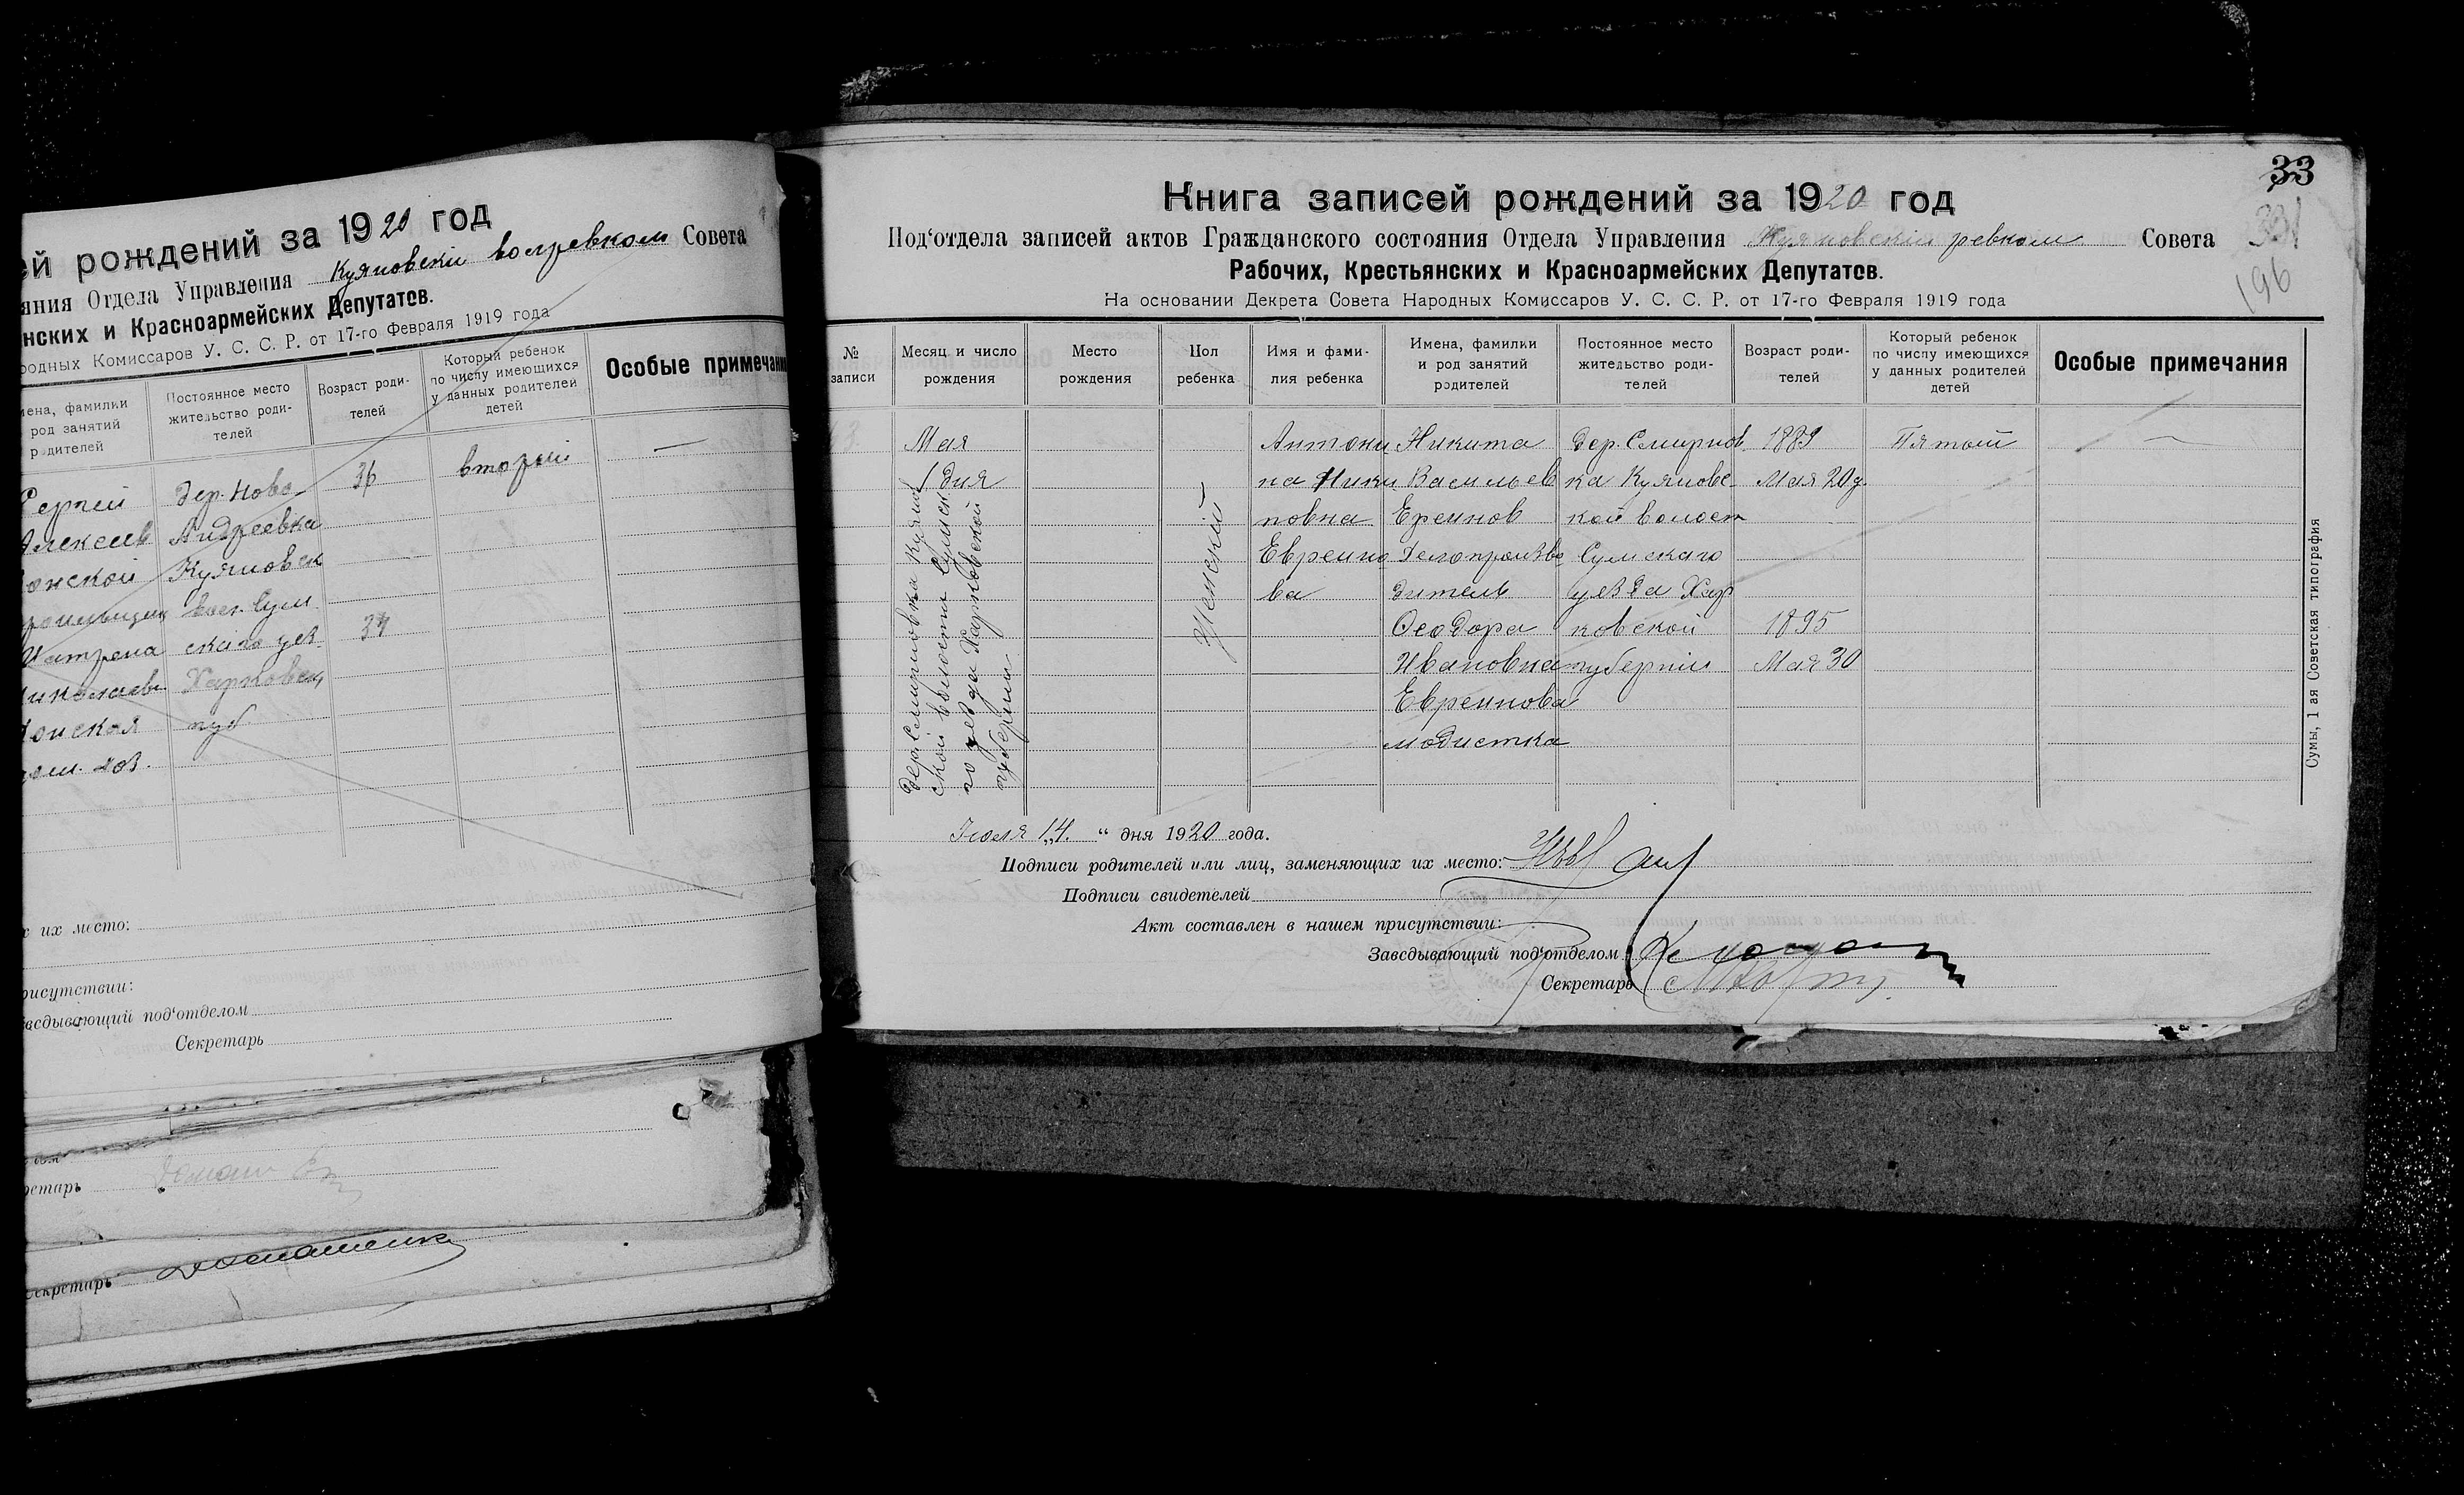 ей рождений за 1920 год
яния Отдела Управления Куяновскій волревком Совета
нских и Красноармейских Депутатов.
родных Комиссаров У. С. С. Р. от 17-го Февраля 1919 года
мена, фамилии
род занятий
родителей
Постоянное место
жительство роди-
телей
Возраст роди-
телей
Который ребенок
по числу имеющихся
у данных родителей
детей
Особые примечани
Сергей
Алексеев
онской
Матрена
Николаев
Донская
дер. Ново
Андреевка
Куяновск
вол. Сум
скаго уез
Харьковск
губ
36
34
второй
—
х их место:
рисутствии:
заведывающий под‘отделом
Секретарь
ретарь
Секретарь Домашенко
33
331
196
Книга записей рождений за 1920 год
Под‘отдела записей актов Гражданского состояния Отдела Управления Куяновскій ревком Совета
Рабочих, Крестьянских и Красноармейских Депутатов.
На основании Декрета Совета Народных Комиссаров У. С. С. Р. от 17-го Февраля 1919 года
№
записи
Месяц и число
рождения
Место
рождения
Пол
ребенка
Имя и фами-
лия ребенка
Имена, фамилии
и род занятий
родителей
Постоянное место
жительство роди-
телей
Возраст роди-
телей
Который ребенок
по числу имеющихся
у данных родителей
детей
Особые примечания
3
Мая
1 дня
дер. Смирновка Куянов
ской волости Сумск
го уезда Харьковской
губернии
Женский
Антони
на Ники
повна
Евреино
ва
Никита
Васильев
Евреинов
Делопроизво
дитель
Феодора
Ивановна
Евреинова
модистка
дер. Смирнов
ка Куяновс
кой волост
Сумскаго
уезда Харь
ковской
губернии
1889
Мая 20 д.
1895
Мая 30
Пятый
—
Июля 14. “ дня 1920 года.
Подписи родителей или лиц, заменяющих их место:
Подписи свидетелей
Акт составлен в нашем присутствии:
Заведывающий под‘отделом
Секретарь
Сумы, 1 ая Советская типография